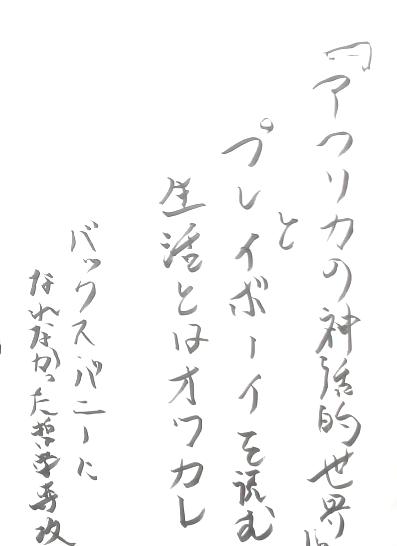 「アフリカの神話的世界
と
プレイボーイを読む
生活とはオワカレ
バックスバニーに
なれなかった哲学専攻